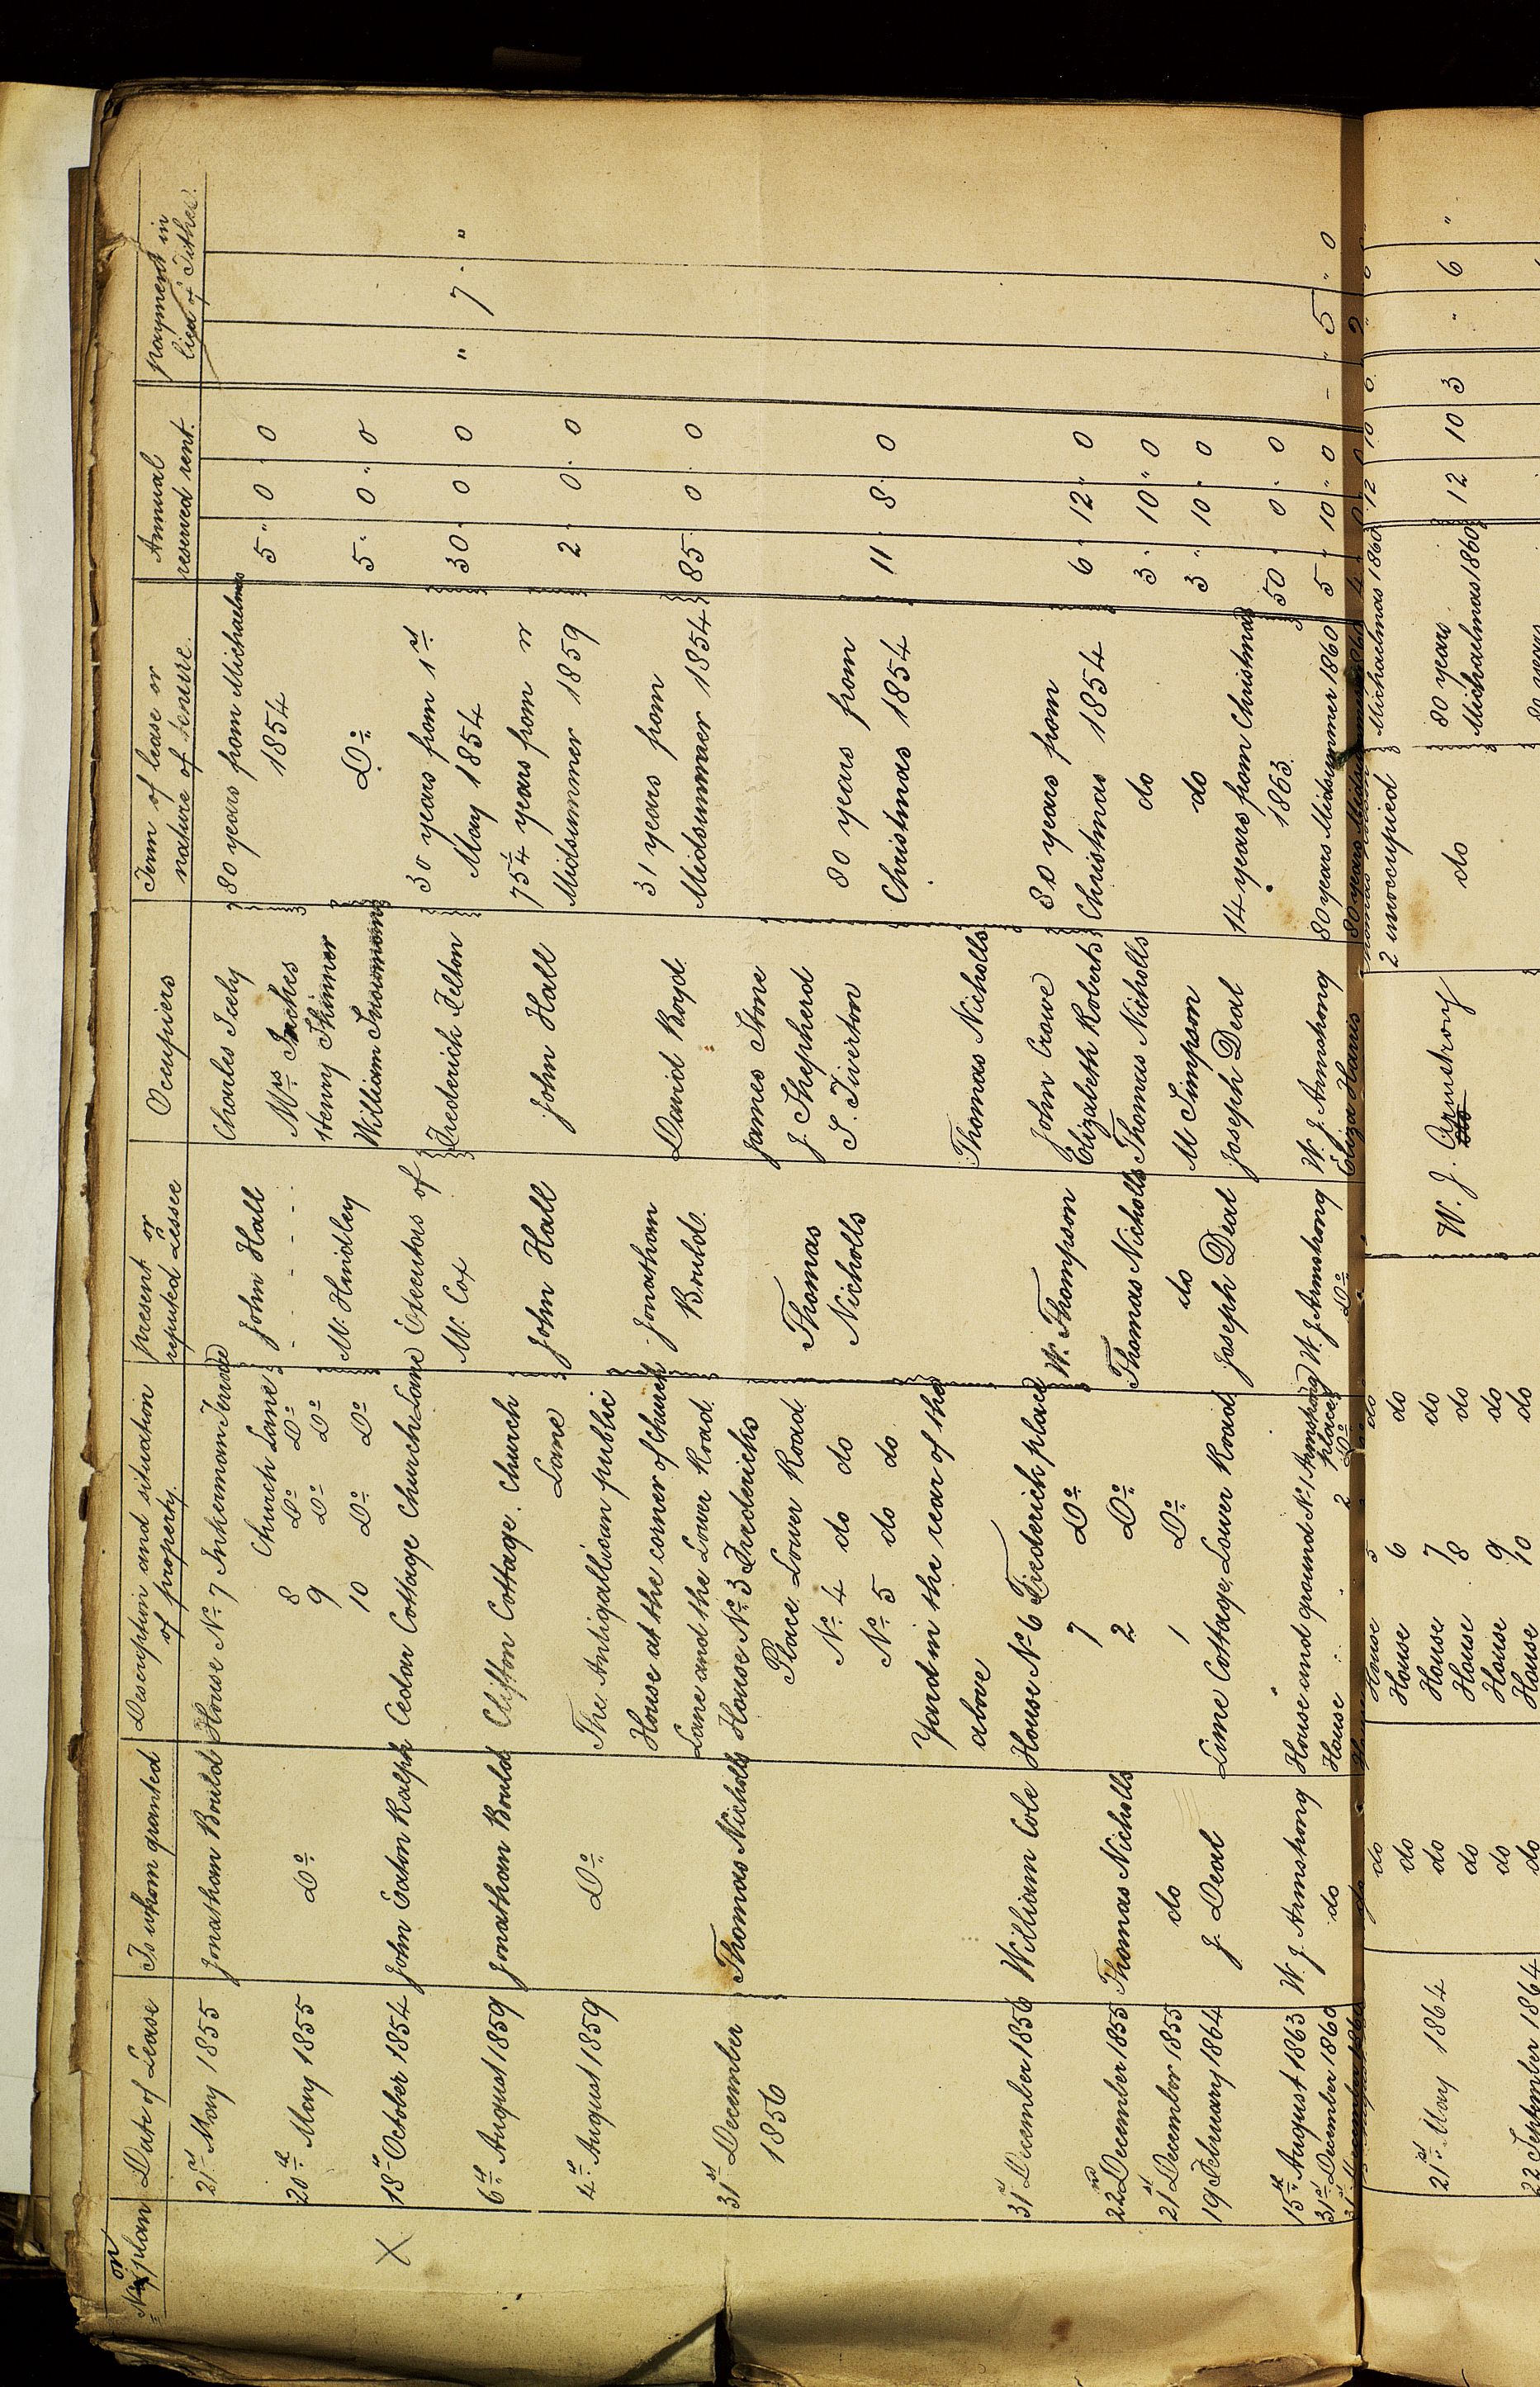 No on plan | Date of Lease | To whom granted | Description and situation of property. | present or reputed Lessee | Occupiers | Term of lease or nature of tenure. | Annual reserved rent. | payment in lieu of Tithes.
21st May 1855 | Jonathan Bould | House No 7 Inkerman Terrace | John Hall | Charles Icely | 80 years from Michaelmas | 5 " 0 " 0
Church Lane | 1854
20th May 1855 | Do | 8 Do Do | Mrs Inches
9 Do Do | Henry Skinner
10 Do Do | M. Hindley | William Snowmons | Do | 5 " 0 " 0
X | 18th October 1854 | John Eaton Ralph | Cedar Cottage Church Lane | Executors of | Frederick Felton | 30 years from 1st | 30 " 0 " 0 | " 7 "
M. Cox | May 1854
6th August 1859 | Jonathan Bould | Clifton Cottage. Church | John Hall | John Hall | 75¼ years from | 2 " 0 " 0
Lane | Midsummer 1859
4th August 1859 | Do | The Antigallican public
House at the corner of Church | Jonathan | David Boyd. | 31 years from | 85 " 0 " 0
Lane and the Lower Road. | Bould. | Midsummer 1854
31st December | Thomas Nicholls | House No 3 Fredericks | James Stone
1856 | Place. Lower Road | Thomas | J. Shepherd
No 4 do do | Nicholls | S. Tiverton | 80 years from | 11 " 8 " 0
No 5 do do | Christmas 1854
Yard in the rear of the
above | Thomas Nicholls
31st December 1856 | William Cole | House No 6 Frederick place | W. Thompson | John Crowe | 80 years from | 6 " 12 " 0
7 Do | Elizabeth Roberts | Christmas 1854
22nd December 1855 | Thomas Nicholls | 2 Do | Thomas Nicholls | Thomas Nicholls | do | 3 " 10 " 0
21st December 1855 | do | 1 Do | do | M Simpson | do | 3 " 10 " 0
19 February 1864 | J. Deal | Lime Cottage, Lower Road | Joseph Deal | Joseph Deal | 14 years from Christmas | 50 " 0 " 0
1863.
15th August 1863 | W. J. Armstrong | House and ground No 1 Armstrong place | W. J. Armstrong | W. J. Armstrong | 80 years Midsummer 1860 | 5 " 10 " 0 | - " 5 " 0
31st December 1860 | do | House 2 Do | Do | Eliza Harris
do | House 5 do | 2 unoccupied | Michaelmas 1860 | 12 10
do | House 6 do
21st May 1864 | do | House 7 do | W. J. Armstrong | do | 80 years | 12 10 3 | " 6 "
do | House 8 do | Michaelmas 1860
do | House 9 do
22 September 1864 | do | House 10 do | 80 years